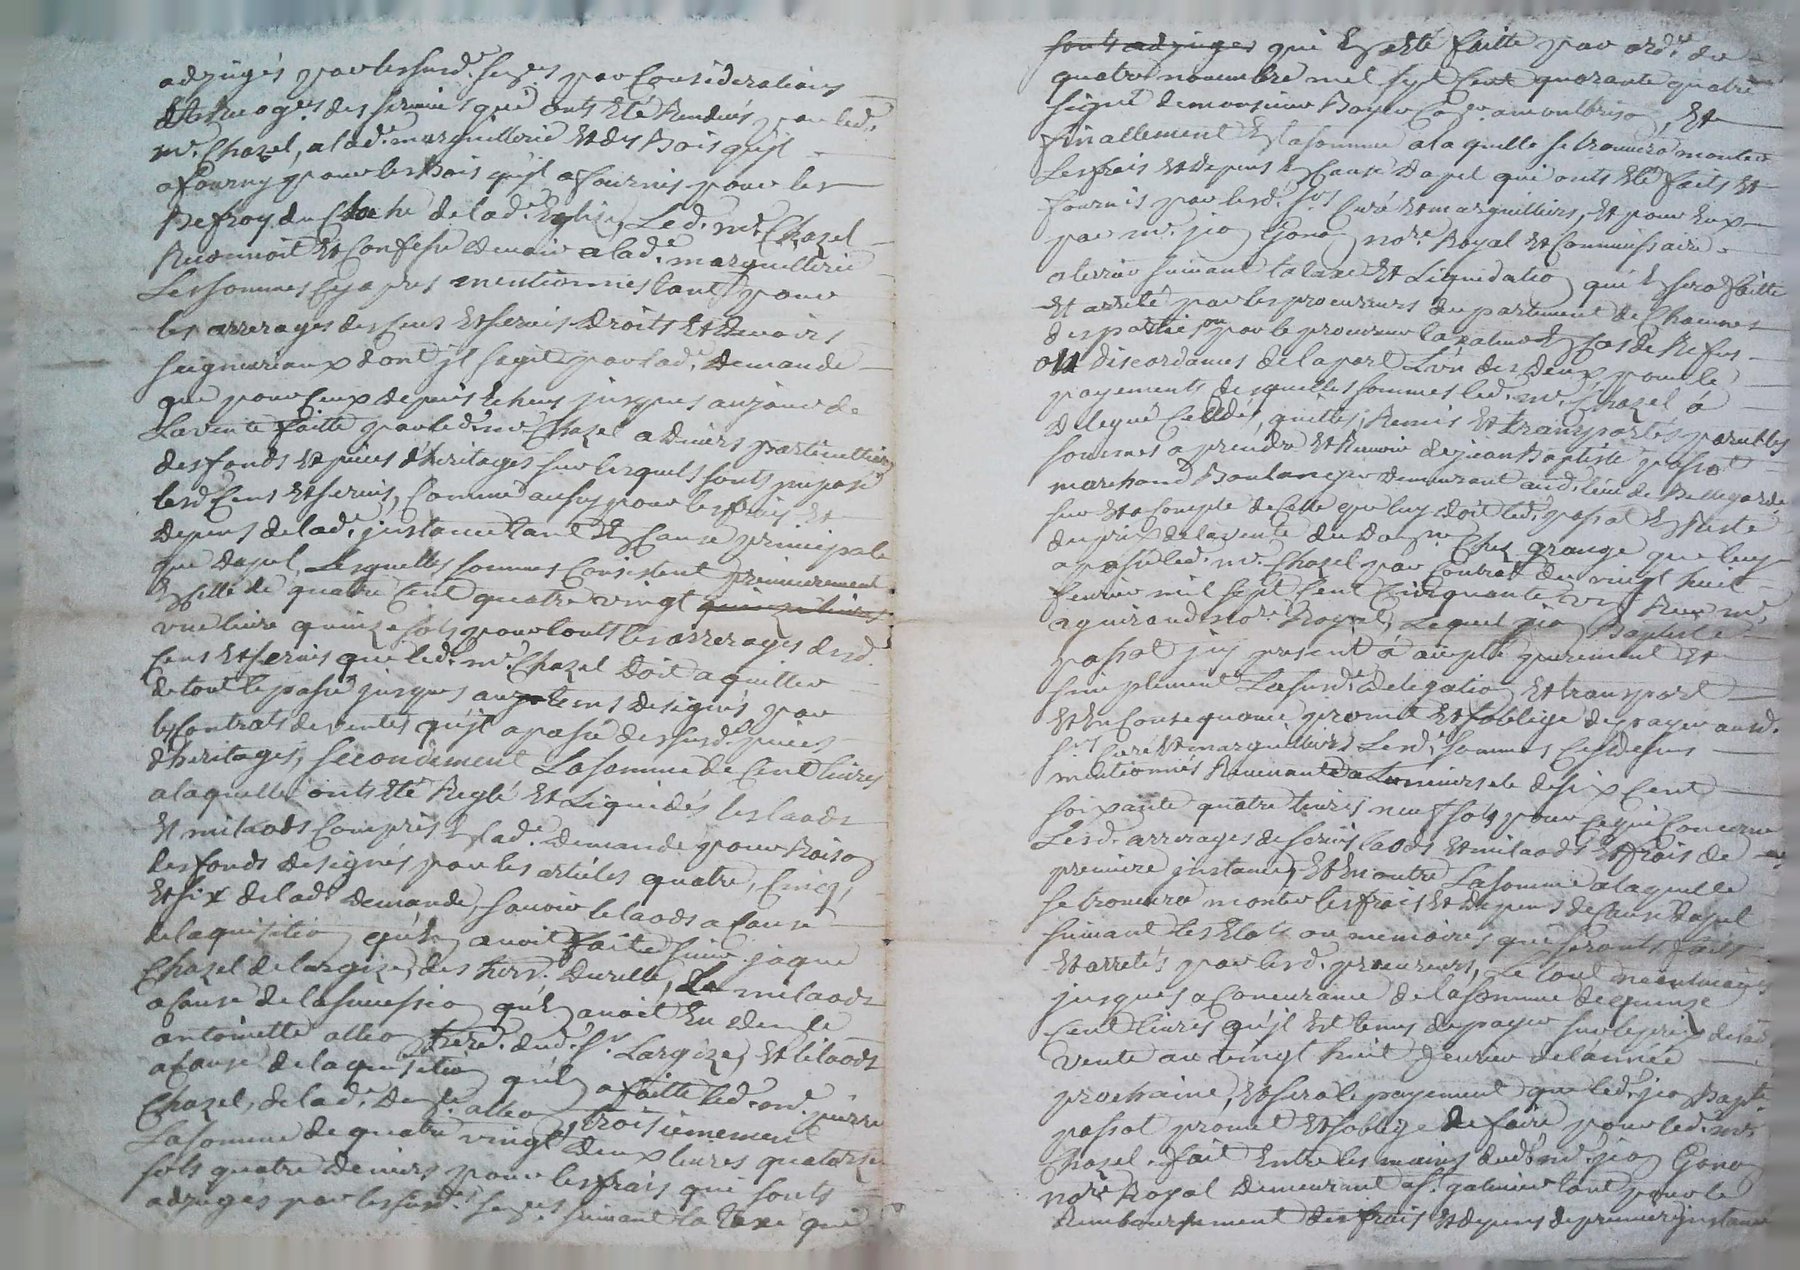 adjugés par lessusd. sences par Considerations
des services qui onts été Rendües par led.
mr. Chazel, a lad. marguillerie Et des Bois qu'jl
a fourny pour les Bois qu'jl a fournis pour le
Beffroy du Cloche de lad. Eglise, Led. mr. Chazel
Reconnoit Et Confesse devoir a lad. marguillerie
Les sommes Cy apres mentionnés tant pour
les arrerages des Cens Et servis Droits Et Devoirs
seigneuriaux dont jl sagit par lad. Demande
que pour Ceux depuis Echeus jusques au jour de
La vente faitte par led. mr. Chazel a Divers particulliers
des fonds Et pieces d'heritages sur lesquels sonts jmposé
lesd. Cens Et servis, Comme aussy pour les frais Et
Depens de lad. jnstance tant En Cause principale
que Dapel, Lesquelles sommes Consistent premierement
En Celle de quatre Cent quatre vingt quinze livres
vne livre quinze sols pour touts les arrerages desd.
Cens Et servis que led. mr. Chazel Doit aquitter
de tout le passé jusques au tems designés par
les Contrats de ventes qu'jl a passé des susd. pieces
d'heritages, secondement La somme de Cent livres
a laquelle onts été Reglé Et Liquidés les laods
Et milaods Compris En lad. Demande pour Raison
des fonds designés par les articles quatre, Cinq,
Et six de lad. Demande, savoir le laods a Cause
de laquisition qu'En avoit faite sieur jaque
Chazel de Largize, des hers. Durelle, Le milaods
a Cause de la sucession qu'En avoit Eu delle
antoinette alleon here. dud. sr. Largize, Et le laods
a Cause de laquisition qu'En a faitte led. mr. pierre
Chazel, de lad. Delle. alleon, troisiemement
La somme de quatre vingt Deux livres quatorze
sols quatre Deniers pour les frais qui sonts
adjugés par lessusd. sences suivant la Taxe qui
sonts adjuges qui En a été faitte par ordre. du
quatre novembre mil sept Cent quarante quatre
signé de monsieur Boyer Coer. a montbrison, Et
finallement En la somme a laquelle se trouvera monter
Les frais Et depens En Cause Dapel qui onts Eté faits Et
fournis par lesd. srs. Curé Et marguilliers, Et pour Eux
par mr. jean Gonon nore. Royal Et Commissaire
a terrier suivant la taxe Et Liquidation qui En sera faitte
Et arreté par les procureurs du partement de Chacunes
des parties ou par le procureur En Cas de Refus
ou discordances de la part L'vn des Deux pour le
payements desquelles sommes led. mr. Chazel à
Delegué Cedés, quittés, Remis Et transportés pareilles
sommes a prendre Et Recevoir de jean Baptiste passot
marchand Boulanger demeurant aud. lieu de Bellegarde
sur Et a Compte de Celle que luy Doit led. passot En Reste
du prix de la vente du Dome. Chez grange que luy
a passé led. mr. Chazel par Contrat du vingt huit
fevrier mil sept Cent Cinquante vn Reçu mr.
aguiraud nore. Royal, Lequel jean Baptiste
passot jcy present à accepté purement Et
simplement La susd. Delegation Et transport
Et En Consequance promet Et soblige de payer ausd.
srs. Curé Et marguilliers Lesd. sommes Cy dessus
mentionnés Revenants a Lunniverselle de six Cent
soixante quatre livres neuf sols pour Ce qui Concerne
Lesd. arrerages de servis laods Et milaods Et frais de
premiere jnstance, Et En outre La somme a laquelle
se trouvera monter les frais Et depens de Cause Dapel
suivant les Etats ou memoires qui seronts faits
Et arretés par lesd. procureurs, Le tout neantmoins
jusques a Concurance de la somme de quinze
Cent livres qu'jl Est tenus de payer sur le prix de sad.
vente au vingt huit fevrier de lannée
prochaine, Et sera le payement que led. jean Bapte.
passot promet Et soblige de faire pour led. mr.
Chazel, fait Entre les mains dud. mr. jean Gonon
nore. Royal Demeurant a st. galmier tant pour le
Rembourssement des frais Et depens de premiere jnstance